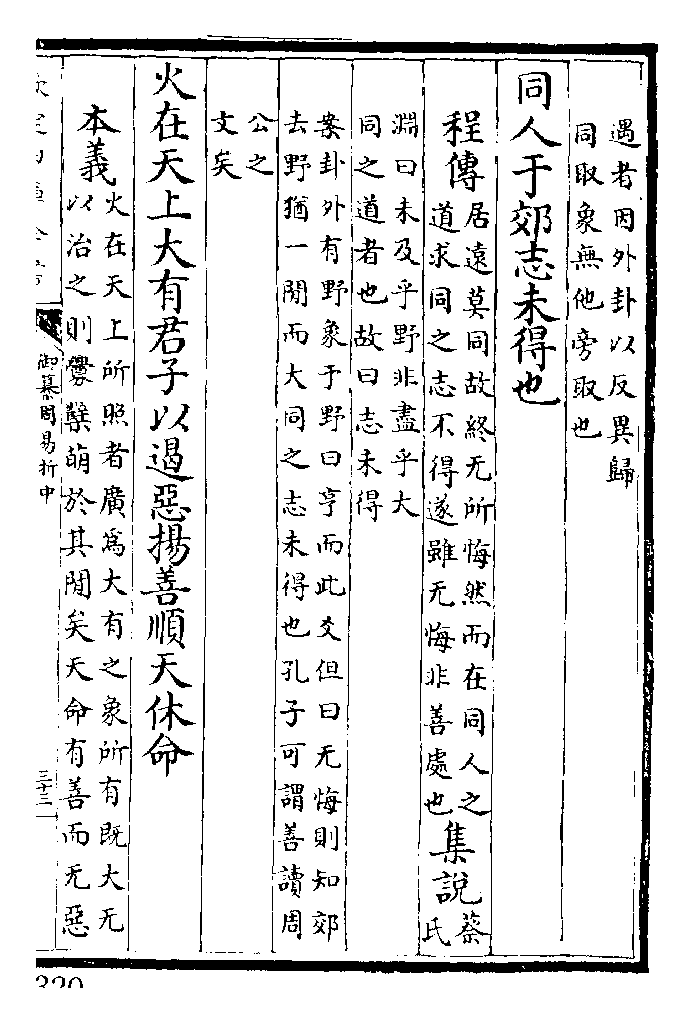 遇者因外卦以反異歸
同取象無他旁取也
同人于郊志未得也
程傳
居遠莫同故終无所悔然而在同人之
道求同之志不得遂雖无悔非善處也
集說
蔡
氏
淵曰未及乎野非盡乎大
同之道者也故曰志未得
案卦外有野象于野曰亨而此爻但曰无悔則知郊
去野猶一閒而大同之志未得也孔子可謂善讀周
公之
文矣
火在天上大有君子以遏惡揚善順天休命
本義
火在天上所照者廣爲大有之象所有既大无
以治之則釁蘖萌於其閒矣天命有善而无惡
御纂周易折中
三十三
320